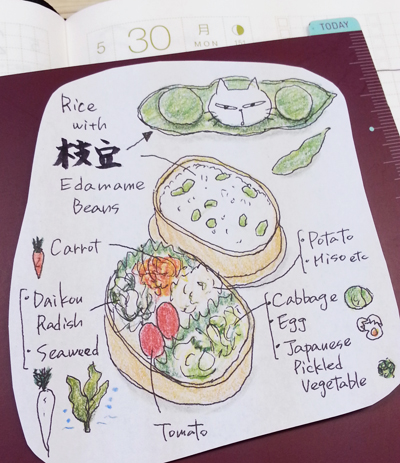 TODAY
5 30 月
MON
Rice
with
枝豆
Edamame
Beans
Carrot
・Daikon
Radish
・Seaweed
Tomato
・Potato
・Miso etc
・Cabbage
・Egg
・Japanese
Pickled
Vegetable